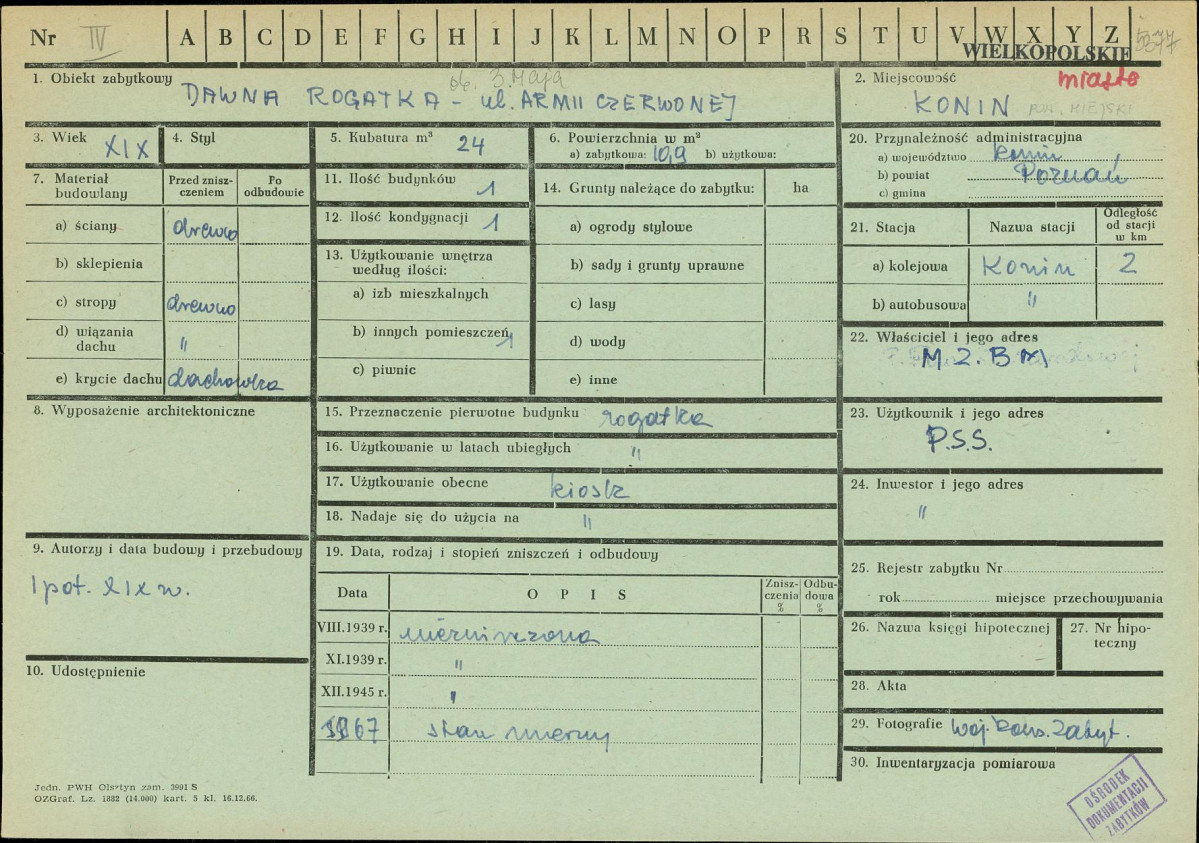 Nr IV A B C D E F G H I J K L M N O P R S T U V W X Y Z 5377
WIELKOPOLSKIE
1. Obiekt zabytkowy
ob. 3. Maja
DAWNA ROGATKA - ul. ARMII CZERWONEJ
2. Miejscowość
miasto
KONIN POW. MIEJSKI
3. Wiek XIX
4. Styl
5. Kubatura m³ 24
6. Powierzchnia w m²
a) zabytkowa: 10,9 b) użytkowa:
7. Materiał budowlany
Przed zniszczeniem
Po odbudowie
a) ściany drewno
b) sklepienia
c) stropy drewno
d) wiązania dachu "
e) krycie dachu dachówka
8. Wyposażenie architektoniczne
9. Autorzy i data budowy i przebudowy
I poł. XIX w.
10. Udostępnienie
11. Ilość budynków 1
12. Ilość kondygnacji 1
13. Użytkowanie wnętrza
według ilości:
a) izb mieszkalnych
b) innych pomieszczeń 1
c) piwnic
14. Grunty należące do zabytku: ha
a) ogrody stylowe
b) sady i grunty uprawne
c) lasy
d) wody
e) inne
15. Przeznaczenie pierwotne budynku rogatka
16. Użytkowanie w latach ubiegłych "
17. Użytkowanie obecne kiosk
18. Nadaje się do użycia na "
19. Data, rodzaj i stopień zniszczeń i odbudowy
Data OPIS Zniszczenia % Odbudowa %
VIII.1939 r. niezniszczona
XI.1939 r. "
XII.1945 r. "
1967 stan mierny
20. Przynależność administracyjna
a) województwo Konin
b) powiat Poznań
c) gmina
21. Stacja Nazwa stacji Odległość od stacji w km
a) kolejowa Konin 2
b) autobusowa "
22. Właściciel i jego adres
M.Z.B.M
23. Użytkownik i jego adres
P.S.S.
24. Inwestor i jego adres
"
25. Rejestr zabytku Nr
rok miejsce przechowywania
26. Nazwa księgi hipotecznej
27. Nr hipoteczny
28. Akta
29. Fotografie Woj. Kons. Zabyt.
30. Inwentaryzacja pomiarowa
Jedn. PWH Olsztyn zam. 3991 S
OZGraf. Lz. 1882 (14.000) kart. 5 kl. 16.12.66.
OŚRODEK
DOKUMENTACJI
ZABYTKÓW